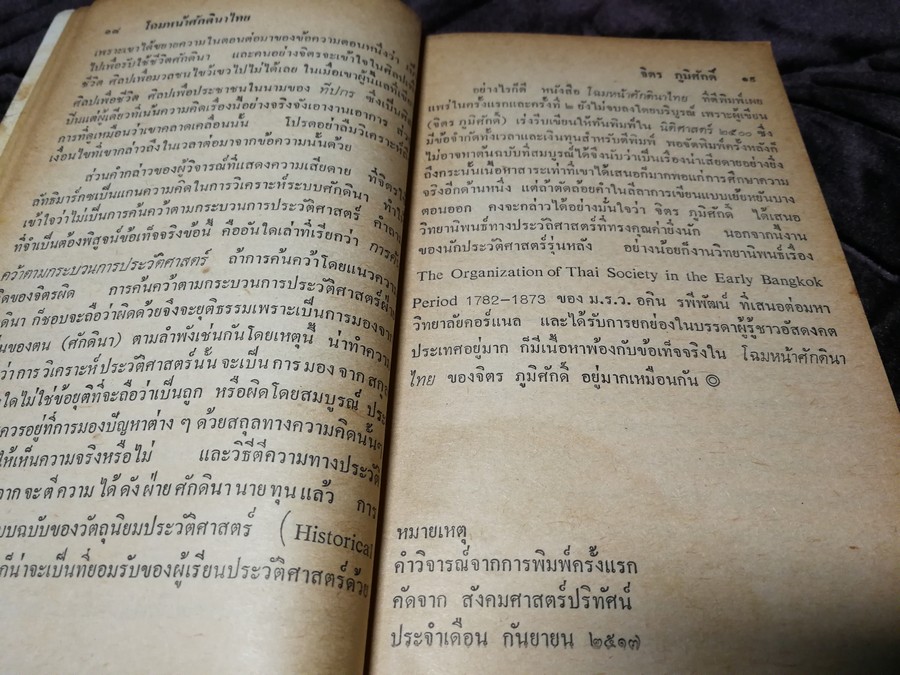 ๑๘ โฉมหน้าศักดินาไทย
เพราะเขาได้ขยายความในตอนต่อมาของข้อความตอนหนึ่งว่า
ไปเพื่อรับใช้ชีวิตศักดินา และคนอย่างจิตรจะเข้าใจในศิลปเพื่อ
ชีวิต ศิลปเพื่อมวลชนไขว้เขวไปไม่ได้เลย ในเมื่อเขาผู้นี้แลที่เขียน
ศิลปเพื่อชีวิต ศิลปเพื่อประชาชนในนามของ ทีปกร ซึ่งเป็น
ปึมแต่ผู้เดียวที่เน้นความคิดเรื่องนี้อย่างจริงจังเอางานเอาการ ส่วน
การที่ดูเหมือนว่าเขาคลาดเคลื่อนนั้น โปรดอย่าลืมวิเคราะห์
เงื่อนไขที่เขากล่าวถึงในเวลาต่อมาจากข้อความนั้นด้วย
ส่วนคำกล่าวของผู้วิจารณ์ที่แสดงความเสียดาย ที่จิตรใช้
ลัทธิมาร์กซเป็นแกนความคิดในการวิเคราะห์ระบบศักดินา ทำให้
เข้าใจว่าไม่เป็นการค้นคว้าตามกระบวนการประวัติศาสตร์ คำถาม
ที่จำเป็นต้องพิสูจน์ข้อเท็จจริงข้อนี้ คืออันใดเล่าที่เรียกว่า การค้น
คว้าตามกระบวนการประวัติศาสตร์ ถ้าการค้นคว้าโดยแนวความ
คิดของจิตรผิด การค้นคว้าตามกระบวนการประวัติศาสตร์ฝ่าย
ศักดินา ก็ชอบจะถือว่าผิดด้วยจึงจะยุติธรรมเพราะเป็นการมองจาก
ของตน (ศักดินา) ตามลำพังเช่นกันโดยเหตุนี้ น่าทำความ
ว่าการวิเคราะห์ประวัติศาสตร์นั้น จะเป็นการมองจากสกุล
ใดไม่ใช่ข้อยุติที่จะถือว่าเป็นถูก หรือผิดโดยสมบูรณ์ ประ
ควรอยู่ที่การมองปัญหาต่าง ๆ ด้วยสกุลทางความคิดนั้นๆ
ให้เห็นความจริงหรือไม่ และวิธีตีความทางประวัติ
จากจะตีความได้ดังฝ่ายศักดินานายทุนแล้ว การ
แบบฉบับของวัตถุนิยมประวัติศาสตร์ (Historical
ก็น่าจะเป็นที่ยอมรับของผู้เรียนประวัติศาสตร์ด้วย
จิตร ภูมิศักดิ์ ๑๙
อย่างไรก็ดี หนังสือ โฉมหน้าศักดินาไทย ที่ตีพิมพ์เผย
แพร่ในครั้งแรกและครั้งที่ ๒ ยังไม่จบลงโดยบริบูรณ์ เพราะผู้เขียน
(จิตร ภูมิศักดิ์) เร่งรีบเขียนให้ทันพิมพ์ใน นิติศาสตร์ ๒๕๐๐ ซึ่ง
มีข้อจำกัดทั้งเวลาและเงินทุนสำหรับตีพิมพ์ พอจัดพิมพ์ครั้งหลังก็
ไม่อาจหาต้นฉบับที่สมบูรณ์ได้จึงนับว่าเป็นเรื่องน่าเสียดายอย่างยิ่ง
ถึงกระนั้นเนื้อหาสาระเท่าที่เขาได้เสนอก็มากพอแก่การศึกษาความ
จริงอีกด้านหนึ่ง แต่ถ้าตัดถ้อยคำในลีลาการเขียนแบบเย้ยหยันบาง
ตอนออก คงจะกล่าวได้อย่างมั่นใจว่า จิตร ภูมิศักดิ์ ได้เสนอ
วิทยานิพนธ์ทางประวัติศาสตร์ที่ทรงคุณค่ายิ่งนัก นอกจากนี้งาน
ของนักประวัติศาสตร์รุ่นหลัง อย่างน้อยก็งานวิทยานิพนธ์เรื่อง
The Organization of Thai Society in the Early Bangkok
Period 1782–1873 ของ ม.ร.ว. อคิน รพีพัฒน์ ที่เสนอต่อมหา
วิทยาลัยคอร์แนล และได้รับการยกย่องในบรรดาผู้รู้ชาวอัสดงคต
ประเทศอยู่มาก ก็มีเนื้อหาพ้องกับข้อเท็จจริงใน โฉมหน้าศักดินา
ไทย ของจิตร ภูมิศักดิ์ อยู่มากเหมือนกัน ◎
หมายเหตุ
คำวิจารณ์จากการพิมพ์ครั้งแรก
คัดจาก สังคมศาสตร์ปริทัศน์
ประจำเดือน กันยายน ๒๕๑๗